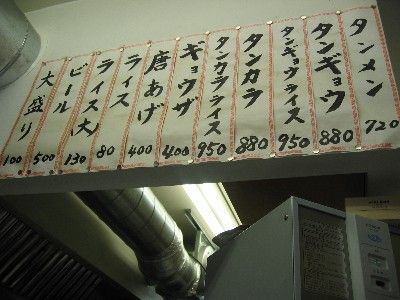 タンメン 720
タンギョウ 880
タンギョウライス 950
タンカラ 880
タンカラライス 950
ギョウザ 400
唐あげ 400
ライス 80
ライス大 130
ビール 500
大盛り 100